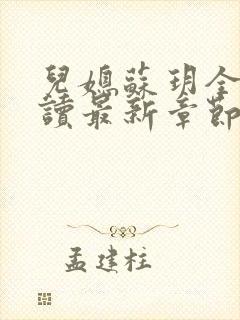 兒媳蘇玥全
讀最新章節
孟建柱